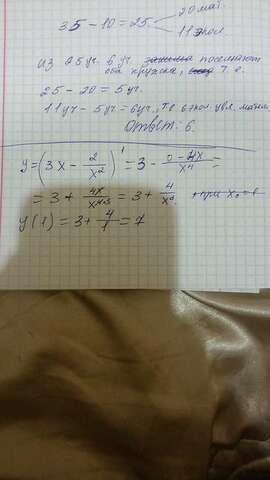 35 - 10 = 25
20 мат.
11 экол.
из 25 уч. 6 уч. посещают
оба кружка, т. е.
25 - 20 = 5 уч.
11 уч - 5 уч = 6 уч,
Ответ: 6.
y = (3x - 2/x²)' = 3 - (0 - 4x)/x⁴ =
= 3 + 4x/x⁴ = 3 + 4/x³ при x₀ = 1
y(1) = 3 + 4/1 = 7